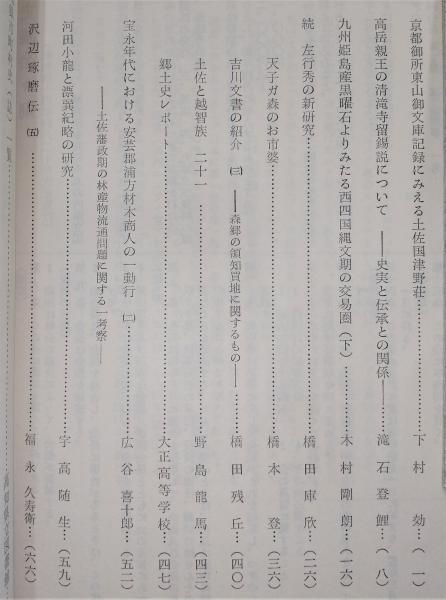 京都御所東山御文庫記録にみえる土佐国津野荘…………下村 効…（ 一）
高岳親王の清滝寺留錫説について ――史実と伝承との関係――……滝石登鯉…（ 八）
九州姫島産黒曜石よりみたる西四国縄文期の交易圏（下）…………木村剛朗…（一六）
続 左行秀の新研究…………橋田庫欣…（二六）
天子ガ森のお市婆…………橋本 登…（三六）
吉川文書の紹介 ㈢ ――森郷の領知買地に関するもの――…………橋田残丘…（四〇）
土佐と越智族 二十一…………野島龍馬…（四三）
郷土史レポート…………大正高等学校…（四七）
宝永年代における安芸郡浦方材木商人の一動行 ㈡…………広谷喜十郎…（五二）
――土佐藩政期の林産物流通問題に関する一考察――
河田小龍と漂巽紀略の研究…………宇高随生…（五九）
沢辺琢磨伝 ㈤…………福永久寿衛…（六六）